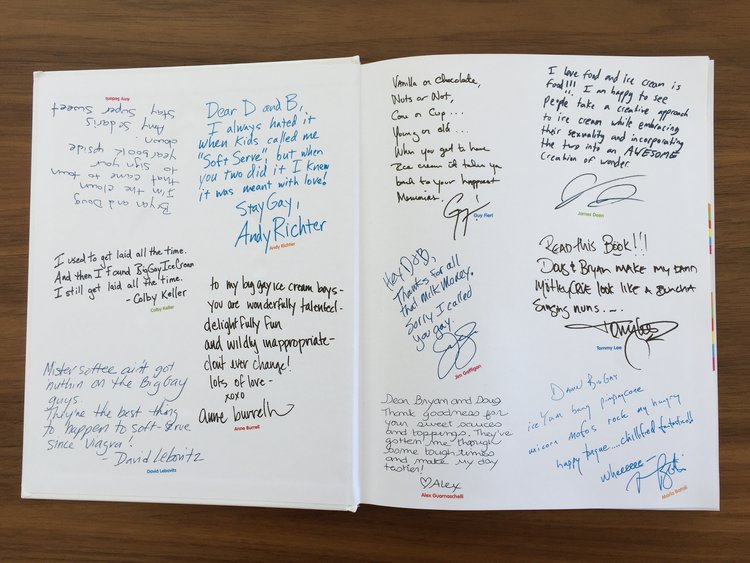 Bryan and Doug
I'm the clown
that came to town
to sign your
yearbook upside
down
Amy Sedaris
Stay Super Sweet
Amy Sedaris
Dear D and B,
I always hated it
when kids called me
"Soft Serve", but when
you two did it I knew
it was meant with love!
Stay Gay,
Andy Richter
Andy Richter
I used to get laid all the time.
And then I found BigGayIceCream
I still get laid all the time.
- Colby Keller
Colby Keller
to my big gay ice cream boys-
you are wonderfully talented-
delightfully fun
and wildly inappropriate-
dont ever change!
lots of love-
xoxo
anne burrell
Anne Burrell
Mister softee ain't got
nuthin on the BigGay
guys.
They're the best thing
to happen to soft-serve
since Viagra!
- David Lebovitz
David Lebovitz
Vanilla or Chocolate,
Nuts or Not,
Cone or Cup...
Young or old...
When you get to have
Ice cream it takes you
back to your happiest
Memories.
Guy Fieri
I love food and ice cream is
food!!! I am happy to see
people take a creative approach
to ice cream while embracing
their sexuality and incorporating
the two into an AWESOME
creation of wonder.
James Deen
Hey D&B,
Thanks for all
that Milk Money.
Sorry I called
you gay.
Jim Gaffigan
READ this BOOK!!!
Doug & Bryan make my band
Mötley Crüe look like a buncha
singing nuns...
Tommy Lee
Dear Bryan and Doug
Thank goodness for
your sweet sauces
and toppings. They've
gotten me through
some tough times
and make my day
tastier!
♡ Alex
Alex Guarnaschelli
Damn BigGay
ice
unicorn mofos rock my hungry
happy
wheeeeee-
Mario Batali